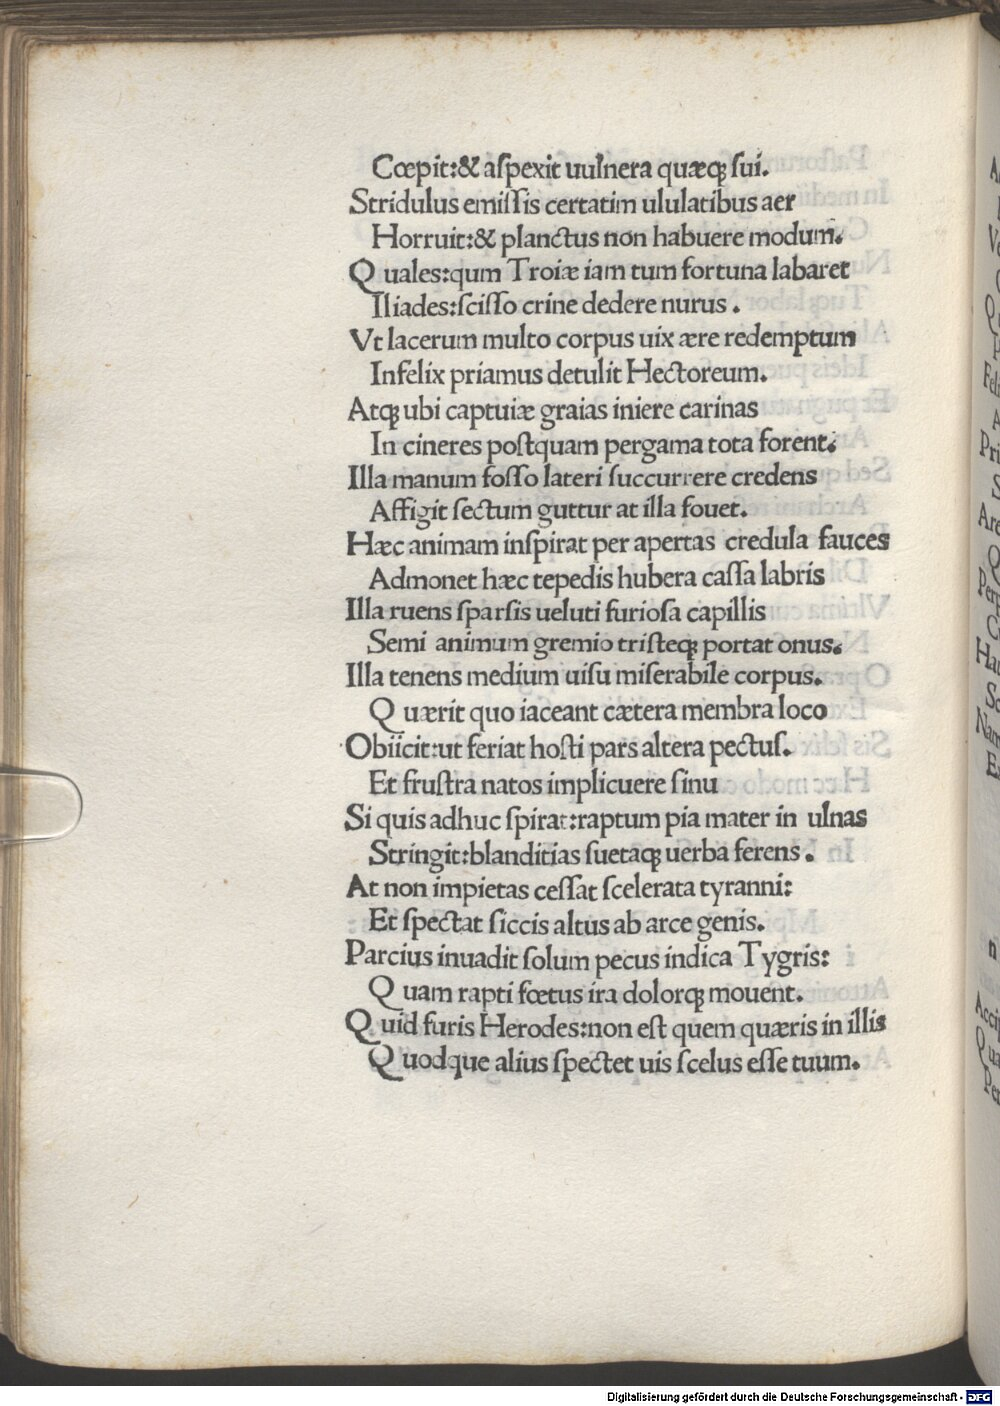 Cœpit:& aſpexit uulnera quæqꝫ ſui.
Stridulus emiſſis certatim ululatibus aer
Horruit:& planctus non habuere modum.
Q uales:qum Troiæ iam tum fortuna labaret
Iliades:ſciſſo crine dedere nurus .
Vt lacerum multo corpus uix ære redemptum
Infelix priamus detulit Hectoreum.
Atqꝫ ubi captuiæ graias iniere carinas
In cineres poſtquam pergama tota forent.
Illa manum foſſo lateri ſuccurrere credens
Affigit ſectum guttur at illa fouet.
Hæc animam inſpirat per apertas credula fauces
Admonet hæc tepedis hubera caſſa labris
Illa ruens ſparſis ueluti furioſa capillis
Semi animum gremio triſteqꝫ portat onus.
Illa tenens medium uiſu miſerabile corpus.
Q uærit quo iaceant cætera membra loco
Obiicit:ut feriat hoſti pars altera pectuſ.
Et fruſtra natos implicuere ſinu
Si quis adhuc ſpirat:raptum pia mater in ulnas
Stringit:blanditias ſuetaqꝫ uerba ferens .
At non impietas ceſſat ſcelerata tyranni:
Et ſpectat ſiccis altus ab arce genis.
Parcius inuadit ſolum pecus indica Tygris:
Q uam rapti fœtus ira dolorqꝫ mouent.
Q uid furis Herodes:non eſt quem quæris in illis
Q uodque alius ſpectet uis ſcelus eſſe tuum.
Digitalisierung gefördert durch die Deutsche Forschungsgemeinschaft - DFG